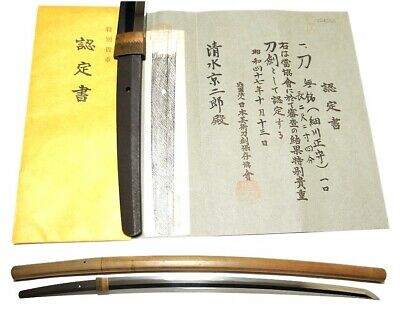 特別貴重
認定書
認定書
一、刀 無銘(細川正守) 一口
長二尺二寸四分
右は當協會に於て審査の結果特別貴重
刀劍として認定する
昭和四十七年十月十三日
財團法人日本美術刀劍保存協會
清水京二郎殿